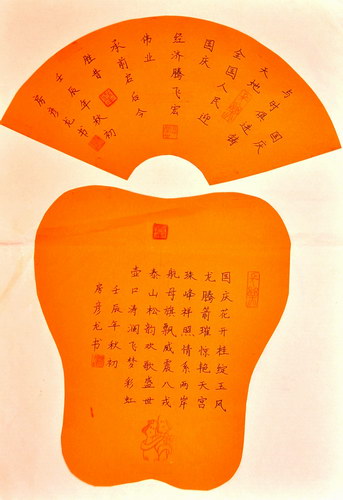 国庆
与时俱进辑
天地
全国人民迎
国庆
经济腾飞宏
伟业
承前启后今
胜昔
壬辰年秋初
房彦龙书
国庆花开桂绽玉风
龙腾蓟璀惊艳天宫
珠峰祥照情系两岸
航母旗飘威震八戎
泰山松韵欢歌盛世
壶口涛澜飞梦彩虹
壬辰年秋初
房彦龙书